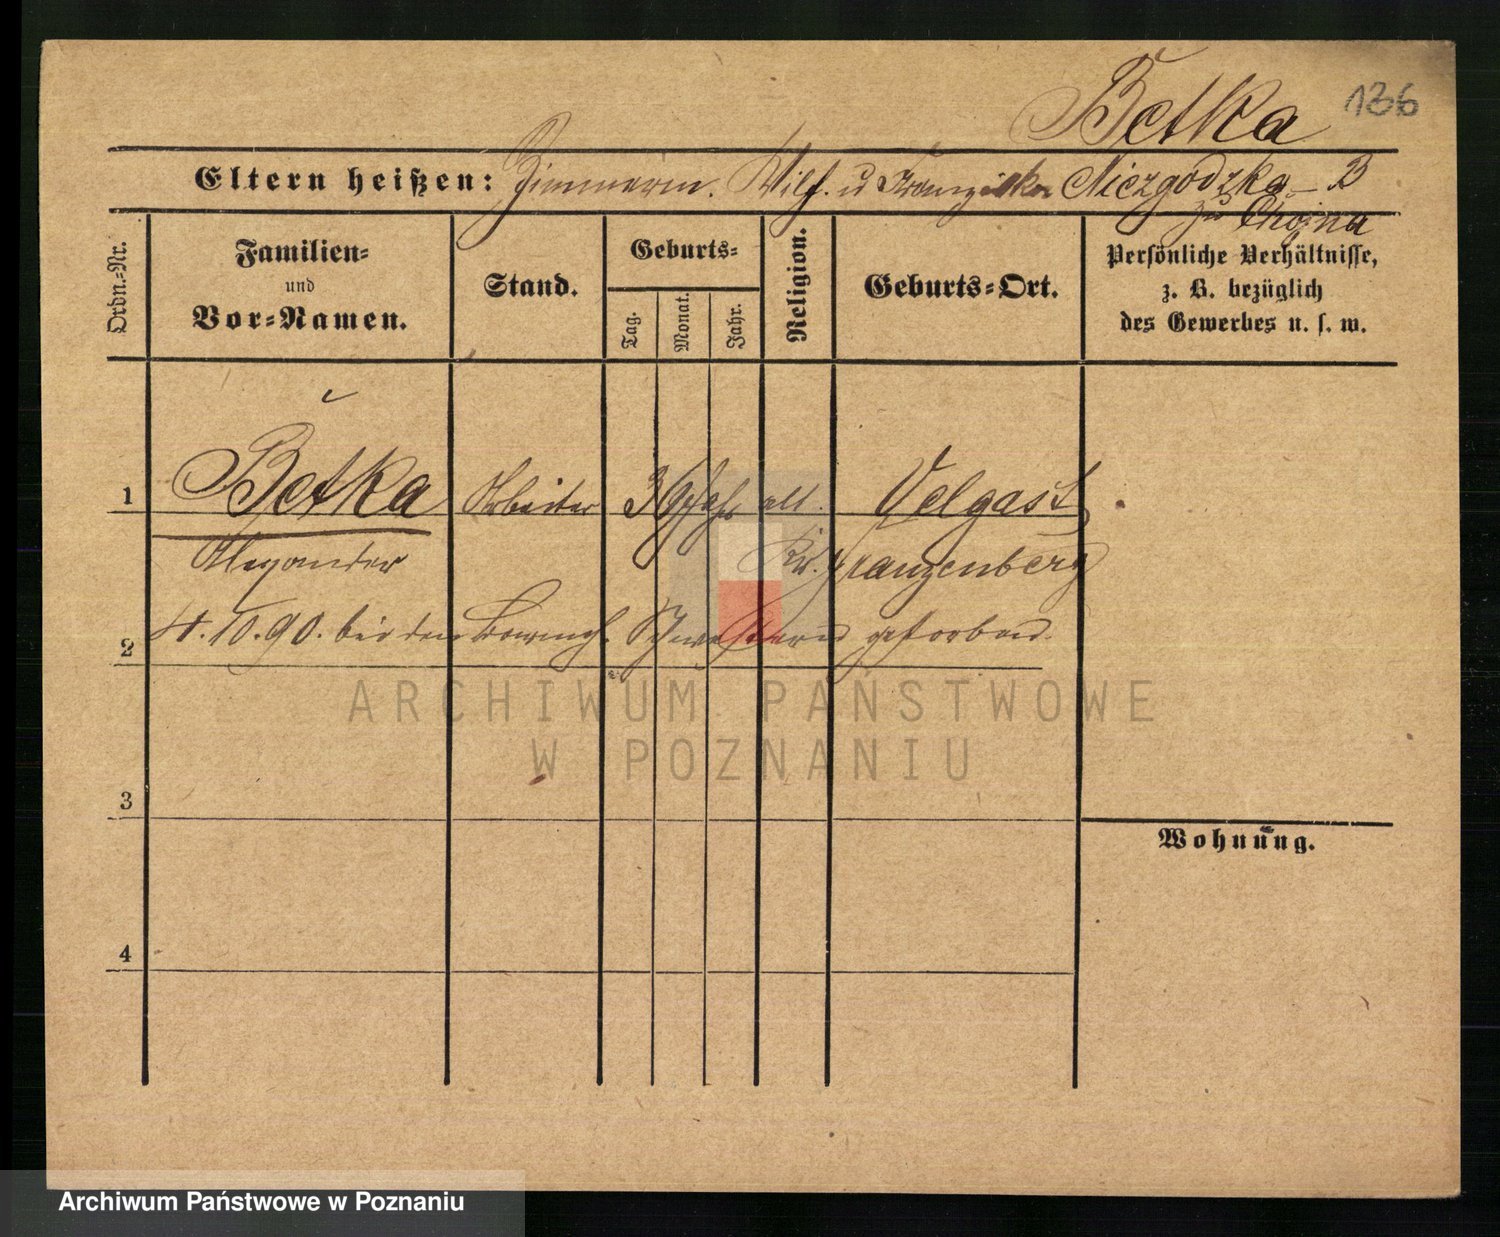 Betka 136
Eltern heißen: Zimmerm. Wilh. u Franziska Niezgodzka – B
zu Chojna
Ordn.-Nr.
Familien-
und
Vor-Namen.
Stand.
Geburts-
Tag.
Monat.
Jahr.
Religion.
Geburts-Ort.
Persönliche Verhältnisse,
z. B. bezüglich
des Gewerbes u. s. w.
1 Betka Arbeiter 36 Jahr alt. Velgast
Alexander Kr. Franzenberg
2 4.10.90. bei den Barmh. Schwestern gestorben.
3
4
Wohnung.
ARCHIWUM PAŃSTWOWE
W POZNANIU
Archiwum Państwowe w Poznaniu